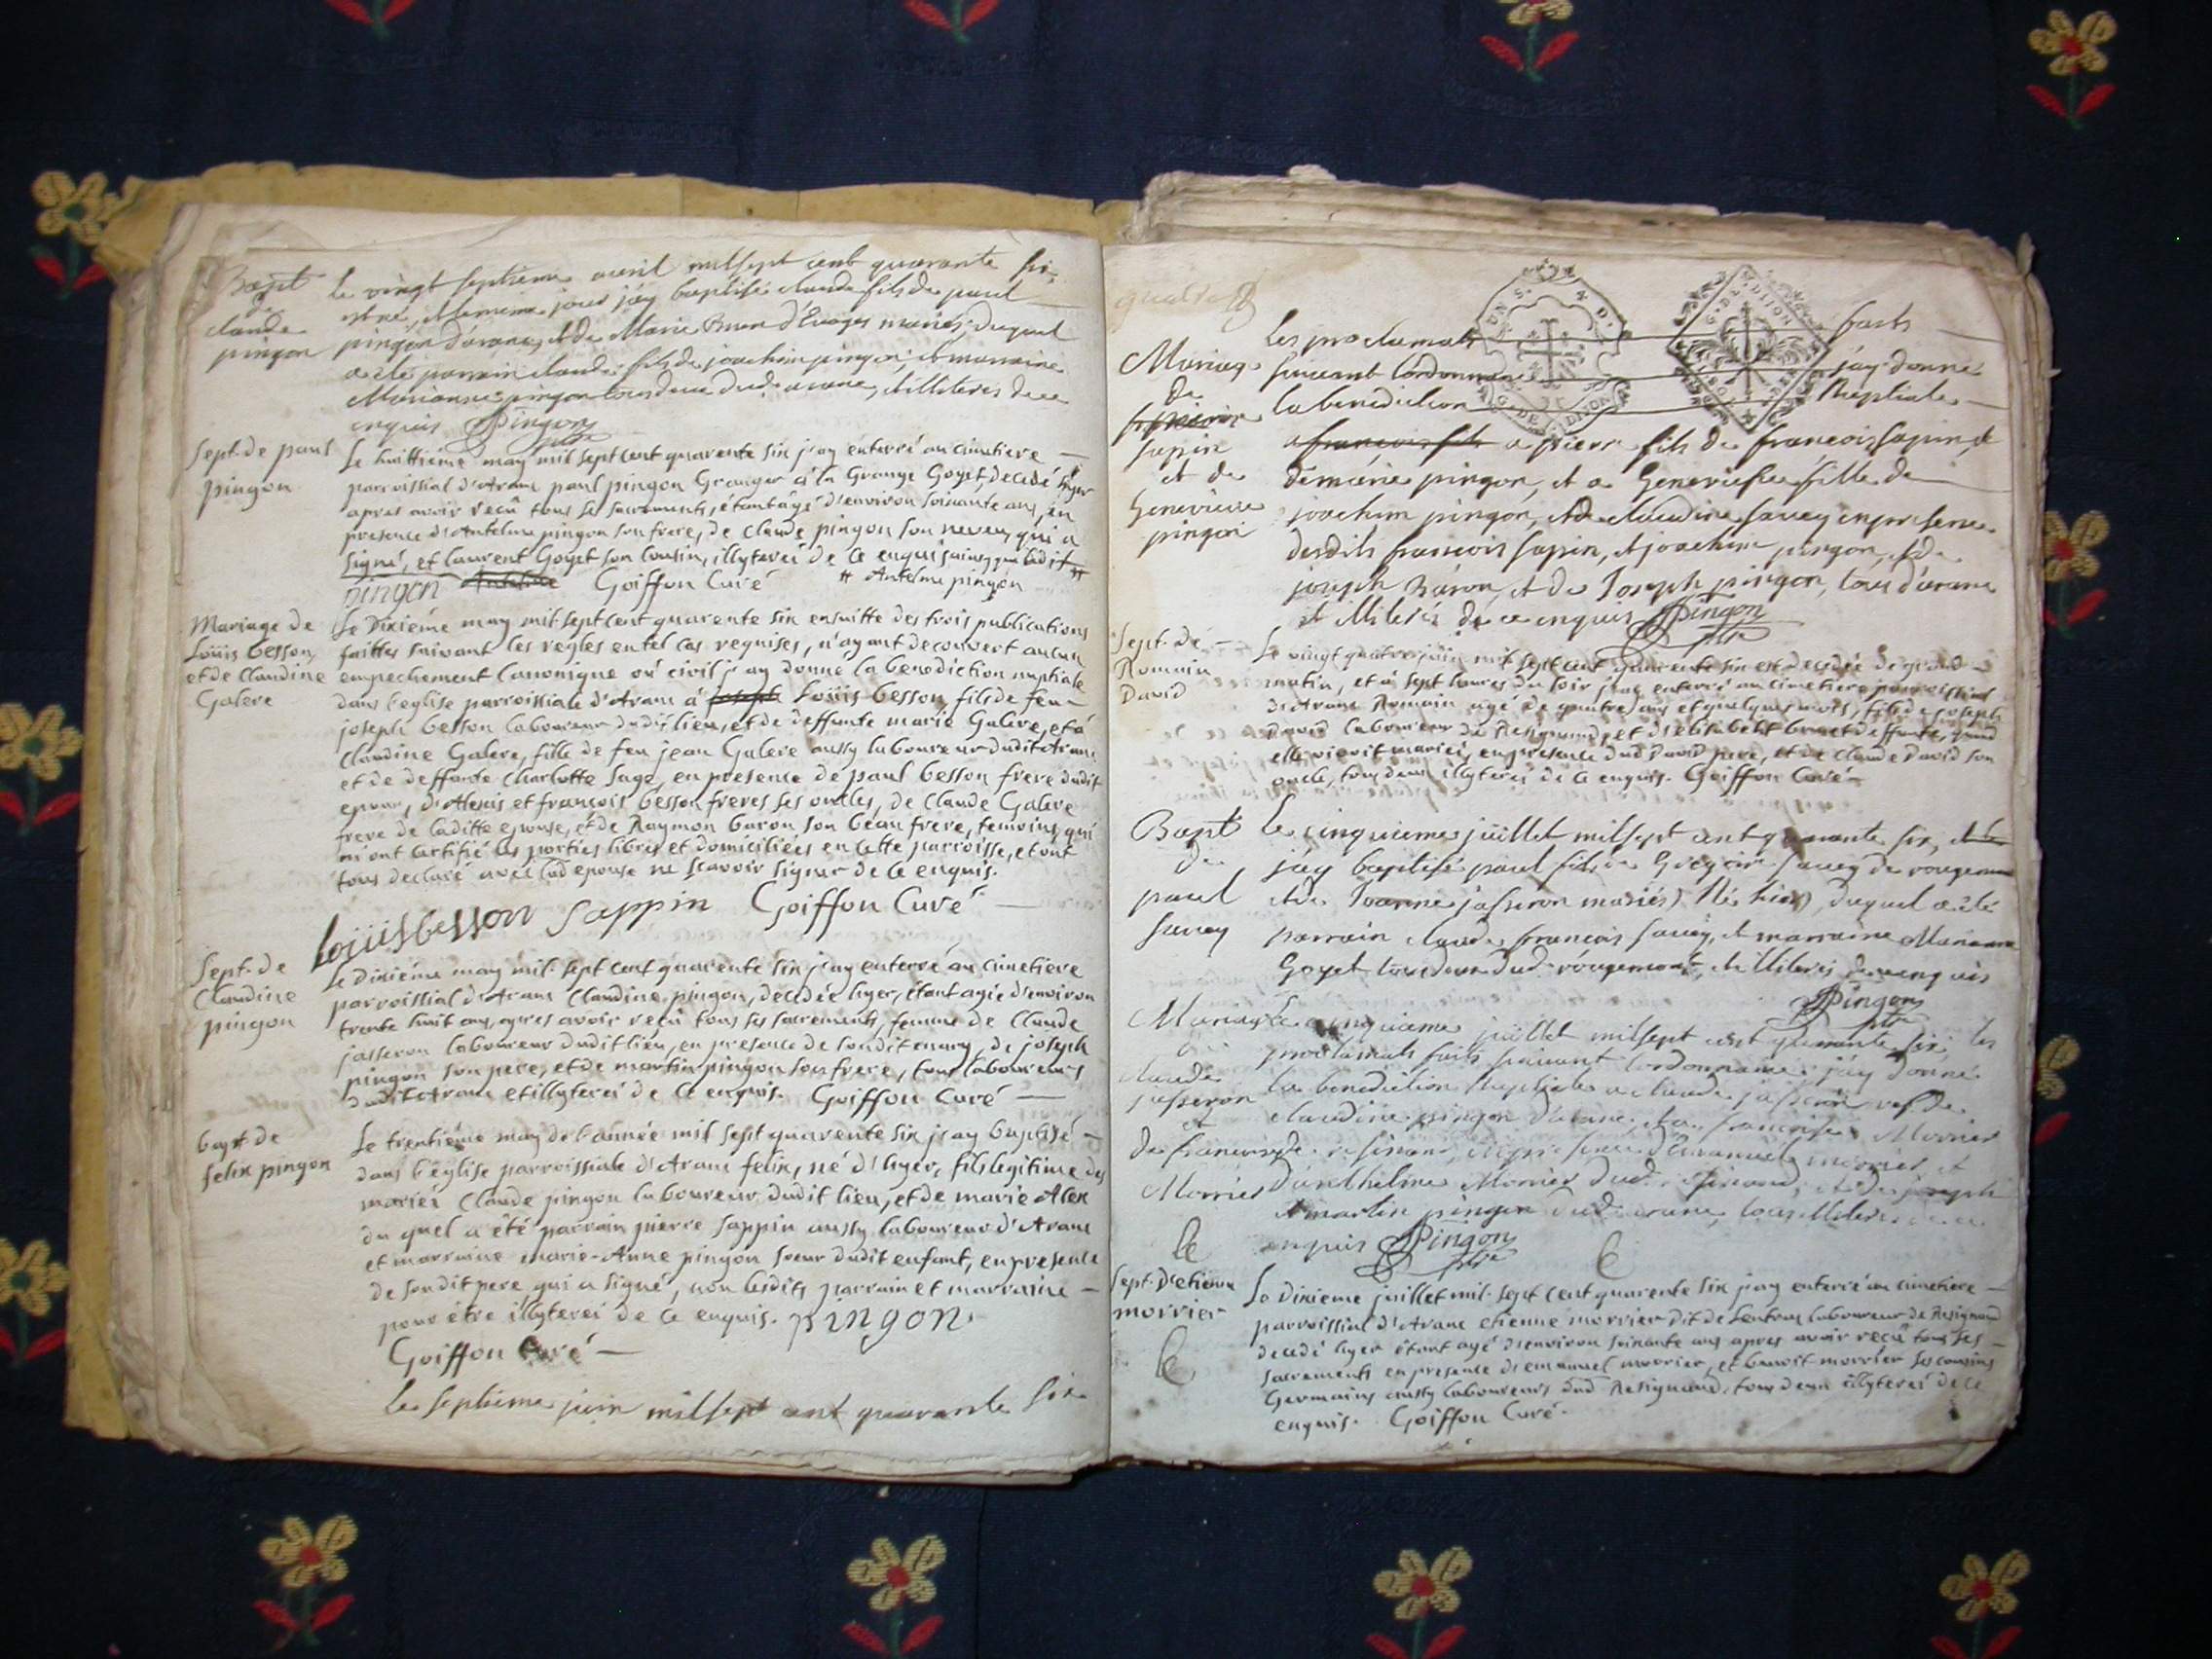 Bapt
de
claude
pingon
le vingt septieme avril mil sept cent quarante six
est né, et le meme jour j'ay baptisé claude fils de paul
pingon d'arane, et de Marie Brun d'Evoges mariés, duquel
a été parrain claude fils de joachim pingon, et marraine
Marianne pingon tous deux dud. arane, illiterés de ce
enquis Pingon
ptre
Sept. de paul
pingon
Le huittiéme may mil sept cent quarente six j'ay enterré au cimetiere
parroissial d'Aranc paul pingon Granger à la Grange Goyet decedé hyer
apres avoir reçû tous ses sacrements, étant âgé d'environ soixante ans, en
presence d'Antelme pingon son frere, de Claude pingon son neveu, qui a
signé, et laurent Goyet son cousin, illyterei de ce enquis
pingon Antelme Goiffon Curé # Antelme pingon
Mariage de
Loüis besson
et de Claudine
Galere
Le Dixiéme may mil sept cent quarente six ensuitte des trois publications
faittes suivant les regles en tel cas requises, n'ayant decouvert aucun
empechement canonique ou civil j'ay donné la benediction nuptiale
dans l'eglise parroissiale d'Aranc à joseph Loüis besson, fils de feu
joseph besson laboureur dudit lieu, et de deffunte marie Galere, et à
Claudine Galere, fille de feu jean Galere aussy laboureur dudit Aranc
et de deffunte Charlotte Sage, en presence de paul besson frere dudit
epoux, d'Alexis et françois besson freres ses oncles, de Claude Galere
frere de laditte epouse, et de Raymon baron son beau frere, temoins, qui
m'ont certifié les parties libres et domiciliées en cette parroisse, et ont
tous declaré avec lad. epouse ne scavoir signer de ce enquis.
Loüis besson Sappin Goiffon Curé
Sept. de
Claudine
pingon
Le Dixiéme may mil sept cent quarente six j'ay enterré au cimetiere
parroissial d'Aranc Claudine pingon, decedée hyer, étant agée d'environ
trente huit ans, apres avoir reçû tous ses sacrements, femme de Claude
jasseron laboureur dudit lieu, en presence de sondit mary, de joseph
pingon son pere, et de martin pingon son frere, tous laboureurs
dudit Aranc et illyterei de ce enquis. Goiffon Curé
bapt. de
felix pingon
Le trentiéme may de l'année mil sept quarente six j'ay baptisé
dans l'église parroissiale d'Aranc felix, né d'hyer, fils legitime des
mariés Claude pingon laboureur dudit lieu, et de marie Alex
du quel a été parrain pierre sappin aussy laboureur d'Aranc
et marraine marie-Anne pingon soeur dudit enfant, en presence
de sondit pere qui a signé, non lesdits parrain et marraine
pour être illyterei de ce enquis. pingon.
Goiffon Curé
Le septieme juin mil sept cent quarante six
Mariage
de
Sapin
et de
Genevieve
pingon
les proclamats faits
suivant l'ordonnance j'ay donné
la benediction Nuptiale
a françois fils a pierre fils de francois sapin, et
de marie pingon, et a Genevieve fille de
joachim pingon, et de claudine savey en presence
desdits francois sapin, et joachim pingon, et de
joseph Baron, et de Joseph pingon, tous d'arane
et illiterés de ce enquis Pingon
ptre
Sept. de
Romain
David
Le vingt quatre juin mil sept cent quarente six est decedé de grand
matin, et à sept heures du soir j'ay enterré au cimetiere parroissial
d'Aranc Romain agé de quatre ans et quelques mois, fils de joseph
David laboureur de Resignand, et d'Elisabeth brunet deffunte, quand
elle vivoit mariés, en presence dud. David pere, et de Claude David son
oncle, tous deux illyterei de ce enquis. Goiffon Curé
Bapt
de
paul
Savey
le cinquieme juillet mil sept cent quarante six
j'ay baptisé paul fils de Gregoire savey de rougemont
et de Jeanne jasseron mariés) Né hier), duquel a été
parrain claude francois savey, et marraine Marianne
Goyet tous deux dud. rougemont, illiterés de ce enquis
Pingon
ptre
Mariage
claude
jasseron
et
de francoise
Morrier
le cinquieme juillet mil sept cent quarante six les
proclamats faits suivant l'ordonnance j'ay donné
la benediction Nuptiale a claude jasseron vef de
claudine pingon d'arane et a francoise Morrier
de resinand, en presence d'Emanuel morrier, et
d'anthelme Morrier dud. resinand, et de joseph
et martin pingon dud. arane, tous illiterés de ce
enquis Pingon
ptre
Sept. d'etienne
morrier
Le Dixieme juillet mil sept cent quarente six j'ay enterré au cimetiere
parroissial d'Aranc etienne morrier dit de Lentras laboureur de Resignand
decedé hyer étant agé d'environ soixante ans apres avoir reçû tous ses
sacrements en presence d'emanuel morrier, et benoit morrier ses cousins
Germains aussy laboureurs dud. Resignand, tous deux illyterei de ce
enquis. Goiffon Curé.